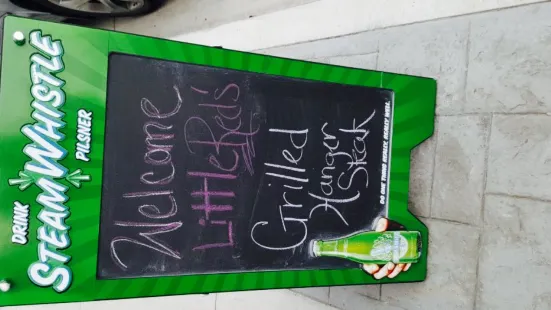 DRINK
STEAM WHISTLE
PILSNER
Welcome
Little Reds'
Grilled
Hanger
Steak
DO ONE THING REALLY, REALLY WELL.